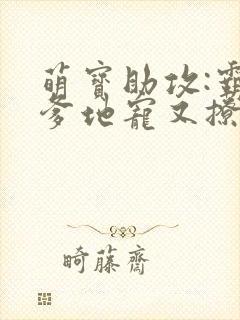 萌寶助攻:霸
爹地寵又撩
畸藤齋